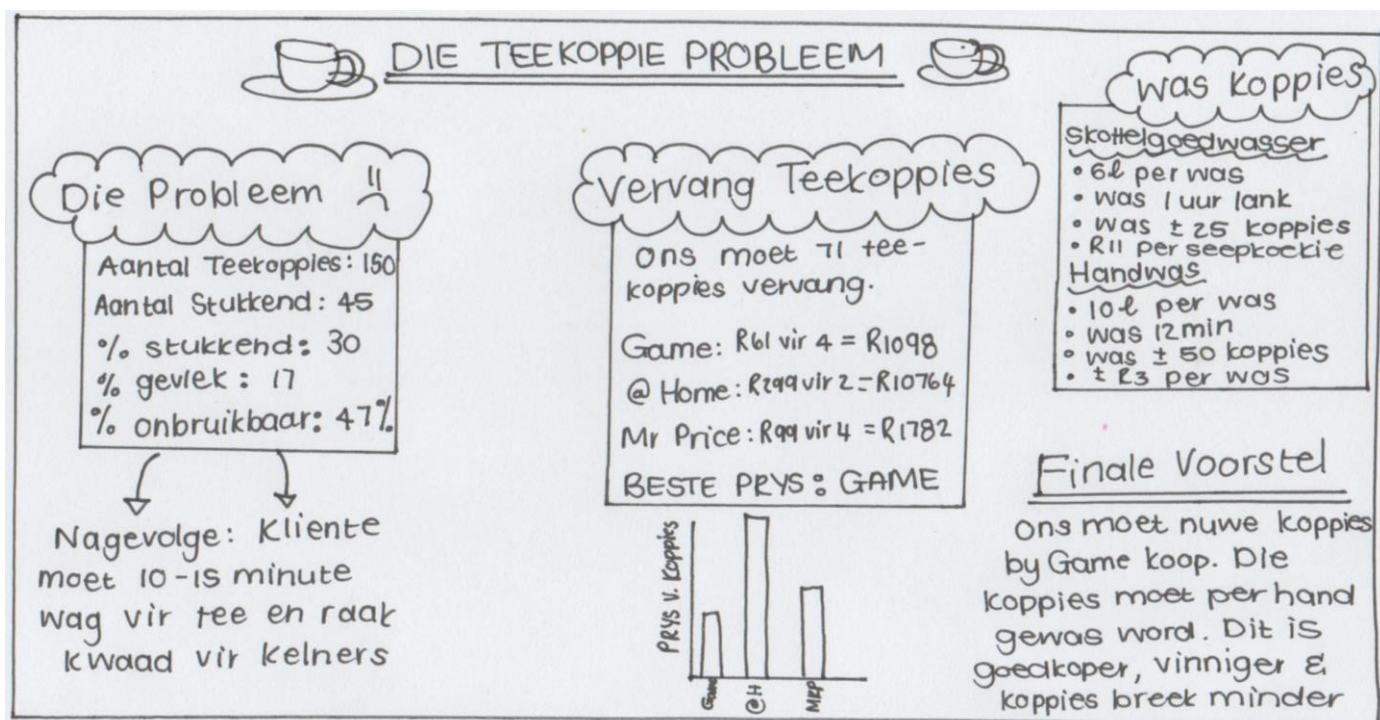 DIE TEEKOPPIE PROBLEEM
Die Probleem
Aantal Teekoppies: 150
Aantal Stukkend: 45
% stukkend: 30
% gevlek: 17
% onbruikbaar: 47%
Nagevolge: Kliente
moet 10-15 minute
wag vir tee en raak
kwaad vir kelners
Vervang Teekoppies
Ons moet 71 tee-
koppies vervang.
Game: R61 vir 4 = R1098
@ Home: R299 vir 2 = R10764
Mr Price: R99 vir 4 = R1782
BESTE PRYS: GAME
PRYS V. Koppies
Game
@H
MRP
was koppies
Skottelgoedwasser
• 6l per was
• was 1 uur lank
• was ± 25 koppies
• R11 per seepkoekie
Handwas
• 10l per was
• was 12min
• was ± 50 koppies
• ± R3 per was
Finale Voorstel
Ons moet nuwe koppies
by Game koop. Die
koppies moet per hand
gewas word. Dit is
goedkoper, vinniger &
koppies breek minder